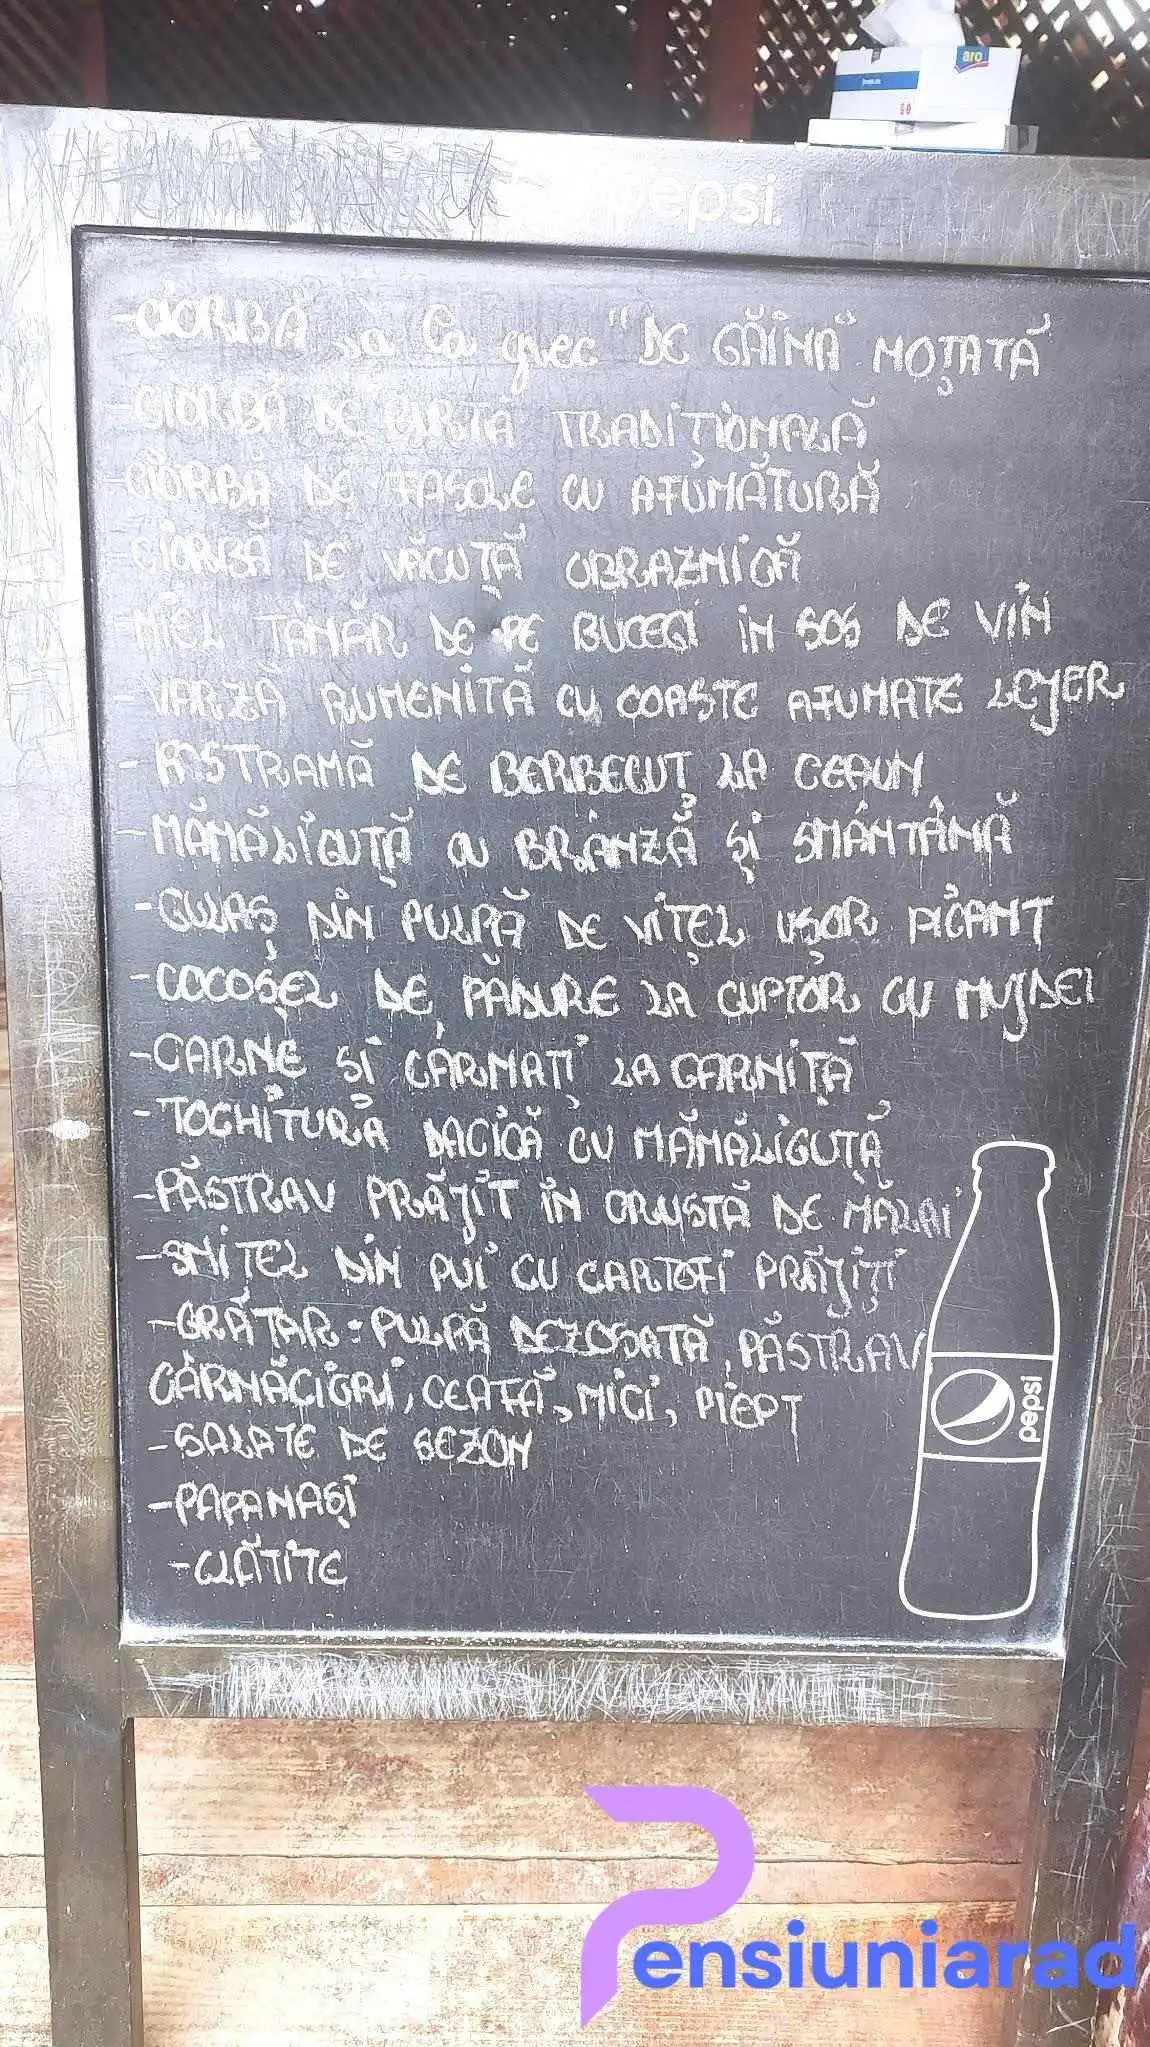 aro
pepsi
-CIORBĂ à la grec "DE GĂINĂ" MOȚATĂ
-CIORBĂ DE BURTĂ TRADIȚIONALĂ
-CIORBĂ DE FASOLE CU AFUMĂTURĂ
-CIORBĂ DE VĂCUȚĂ OBRAZNICĂ
-MIEL TÂNĂR DE PE BUCEGI IN SOS DE VIN
-VARZĂ RUMENITĂ CU COASTE AFUMATE LEJER
-PASTRAMĂ DE BERBECUȚ LA CEAUN
-MĂMĂLIGUȚĂ CU BRÂNZĂ ȘI SMÂNTÂNĂ
-GULAȘ DIN PULPĂ DE VIȚEL UȘOR PICANT
-COCOȘEL DE PĂDURE LA CUPTOR CU MUJDEI
-CARNE SI CÂRNAȚI LA GARNIȚĂ
-TOCHITURĂ DACICĂ CU MĂMĂLIGUȚĂ
-PĂSTRAV PRĂJIT ÎN CRUSTĂ DE MĂLAI
-SNIȚEL DIN PUI CU CARTOFI PRĂJIȚI
-GRĂTAR: PULPĂ DEZOSATĂ, PĂSTRAV
CÂRNĂCIORI, CEAFĂ, MICI, PIEPT
-SALATE DE SEZON
-PAPANAȘI
-CLĂTITE
pepsi
Pensiuniarad